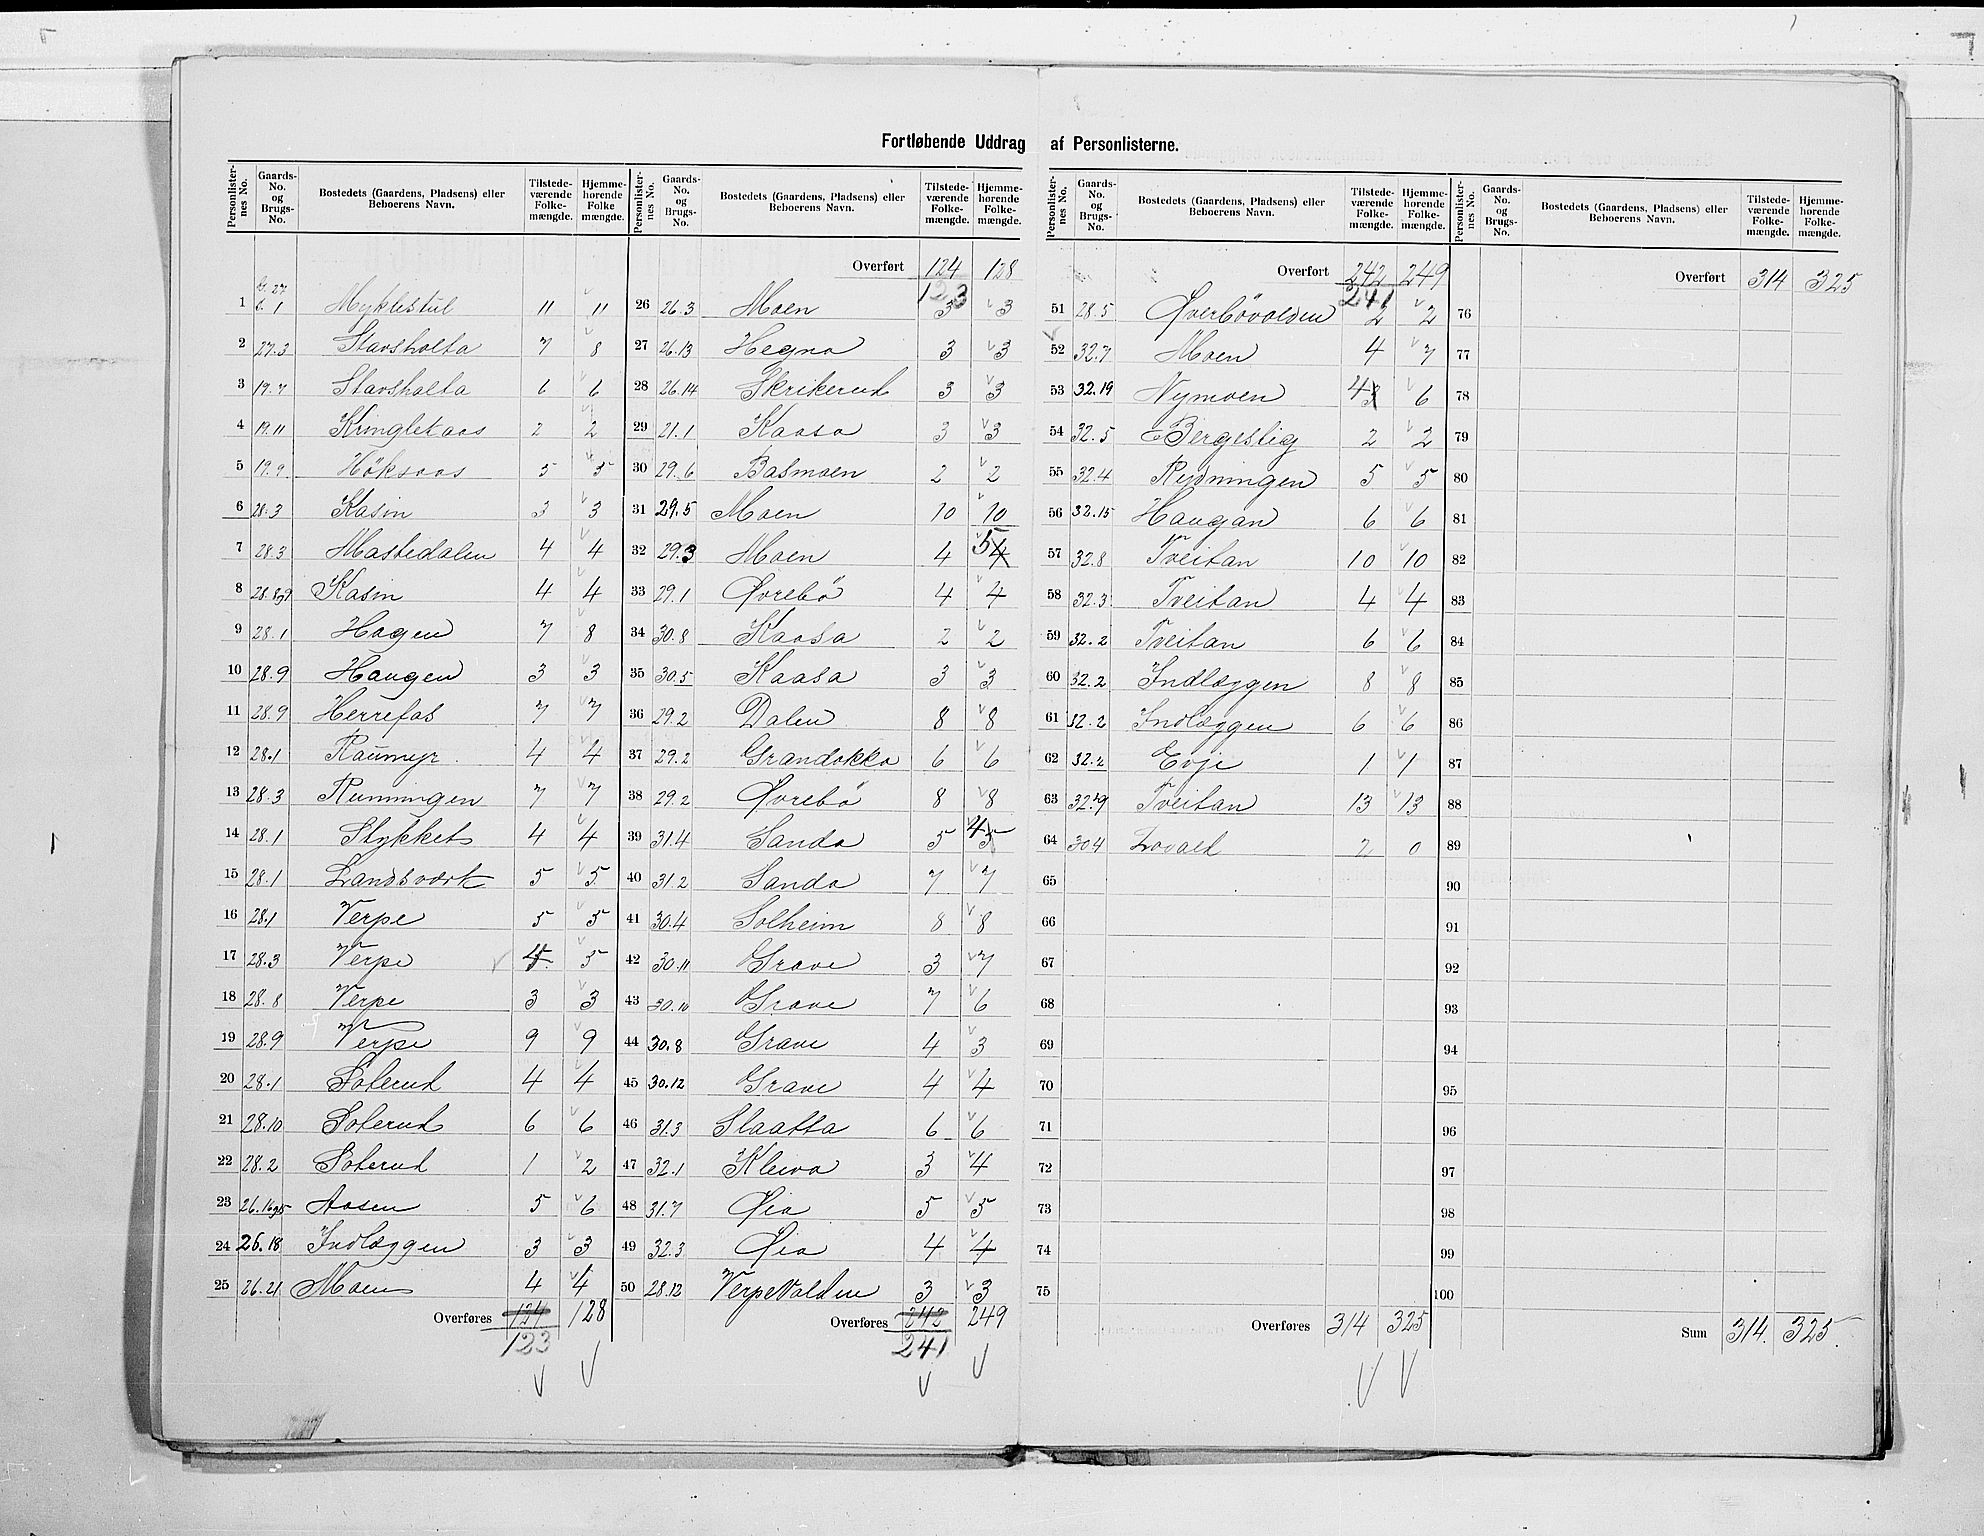 Fortløbende Uddrag af Personlisterne.
Personlisternes No. Gaards-No. og Brugs-No. Bostedets (Gaardens, Pladsens) eller Beboerens Navn. Tilstedeværende Folkemængde. Hjemmehørende Folkemængde.
1 G. 27 b. 1 Myklestul 11 11
2 27.3 Stavsholta 7 8
3 19.7 Stavsholta 6 6
4 19.11 Kringletaas 2 2
5 19.9 Höksaas 5 5
6 28.3 Kasin 3 3
7 28.3 Mastedalen 4 4
8 28.8og9 Kasin 4 4
9 28.1 Hagen 7 8
10 28.9 Haugen 3 3
11 28.9 Herrefos 7 7
12 28.1 Raumyr 4 4
13 28.3 Runningen 7 7
14 28.1 Stykket 4 4
15 28.1 Landsværk 5 5
16 28.1 Verpe 5 5
17 28.3 Verpe 4 5
18 28.8 Verpe 3 3
19 28.9 Verpe 9 9
20 28.1 Soterud 4 4
21 28.10 Soterud 6 6
22 28.2 Soterud 1 2
23 26.16og5 Aasen 5 6
24 26.18 Indlæggen 3 3
25 26.21 Moen 4 4
Overføres 124 128
123
Personlisternes No. Gaards-No. og Brugs-No. Bostedets (Gaardens, Pladsens) eller Beboerens Navn. Tilstedeværende Folkemængde. Hjemmehørende Folkemængde.
Overført 124 128
123
26 26.3 Moen 3 3
27 26.13 Hegna 3 3
28 26.14 Skrikerud 3 3
29 21.1 Kaasa 3 3
30 29.6 Basmoen 2 2
31 29.5 Moen 10 10
32 29.3 Moen 4 5 4
33 29.1 Øvrebö 4 4
34 30.8 Kaasa 2 2
35 30.5 Kaasa 3 3
36 29.2 Dalen 8 8
37 29.2 Grandokka 6 6
38 29.2 Øvrebö 8 8
39 31.4 Sanda 5 4 5
40 31.2 Sanda 7 7
41 30.4 Solheim 8 8
42 30.11 Grave 3 7
43 30.10 Grave 7 6
44 30.8 Grave 4 3
45 30.12 Grave 4 4
46 31.3 Slaatta 6 6
47 32.1 Kleiva 3 4
48 31.7 Øia 5 5
49 32.3 Øia 4 4
50 28.12 Verpevolden 3 3
Overføres 242 249
241
Personlisternes No. Gaards-No. og Brugs-No. Bostedets (Gaardens, Pladsens) eller Beboerens Navn. Tilstedeværende Folkemængde. Hjemmehørende Folkemængde.
Overført 242 249
241
51 28.5 Øverbövolden 2 2
52 32.7 Moen 4 7
53 32.19 Nymoen 4 3 6
54 32.5 Bergestig 2 2
55 32.4 Rydningen 5 5
56 32.15 Haugan 6 6
57 32.8 Tveitan 10 10
58 32.3 Tveitan 4 4
59 32.2 Tveitan 6 6
60 32.2 Indlæggen 8 8
61 32.2 Indlæggen 6 6
62 32.2 Evje 1 1
63 32.19 Tveitan 13 13
64 304 Lovald 2 0
65
66
67
68
69
70
71
72
73
74
75
Overføres 314 325
Personlisternes No. Gaards-No. og Brugs-No. Bostedets (Gaardens, Pladsens) eller Beboerens Navn. Tilstedeværende Folkemængde. Hjemmehørende Folkemængde.
Overført 314 325
76
77
78
79
80
81
82
83
84
85
86
87
88
89
90
91
92
93
94
95
96
97
98
99
100
Sum 314. 325